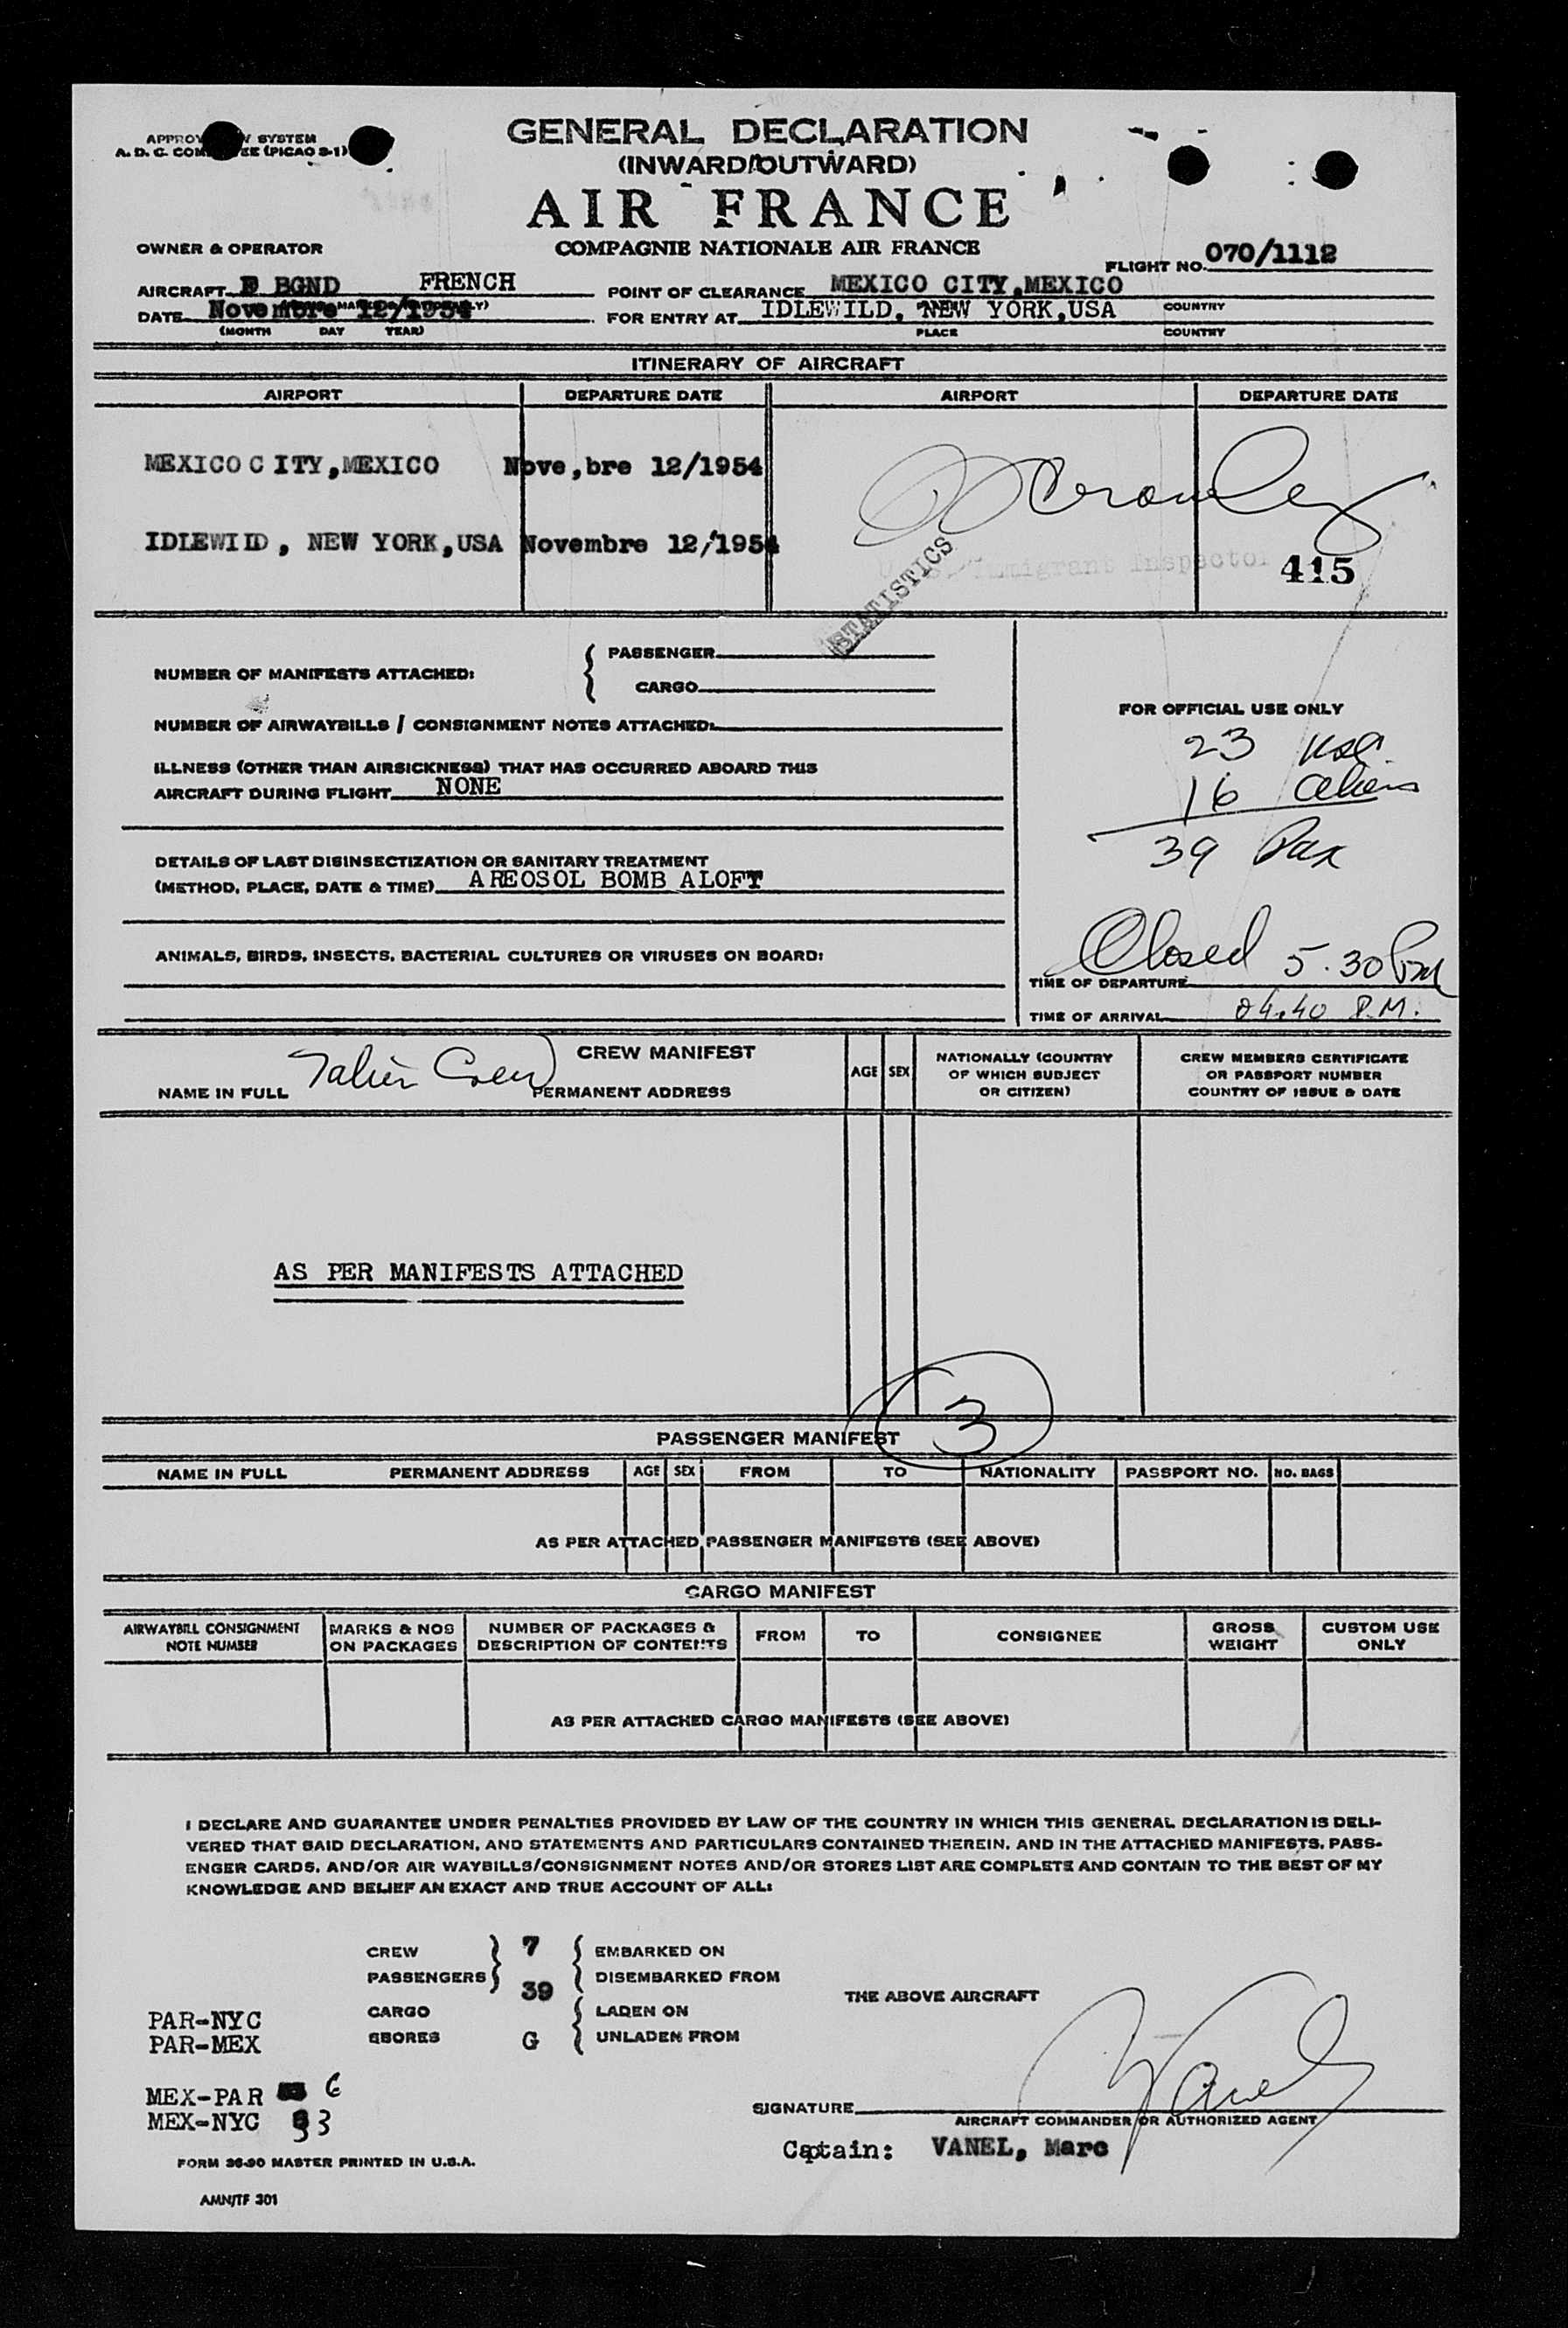 GENERAL DECLARATION
(INWARD/OUTWARD)
AIR FRANCE
COMPAGNIE NATIONALE AIR FRANCE
SYSTEM
A. D. C. (PICAO S-1)
OWNER & OPERATOR
FLIGHT NO. 070/1112
AIRCRAFT F BGND FRENCH
POINT OF CLEARANCE MEXICO CITY,MEXICO
COUNTRY
DATE Novembre 12/1954
FOR ENTRY AT IDLEWILD, NEW YORK,USA
(MONTH DAY YEAR)
PLACE COUNTRY
ITINERARY OF AIRCRAFT
AIRPORT DEPARTURE DATE AIRPORT DEPARTURE DATE
MEXICO C ITY,MEXICO Nove,bre 12/1954
Crowley
IDLEWILD, NEW YORK,USA Novembre 12/1954
Immigrant Inspector
415
STATISTICS
NUMBER OF MANIFESTS ATTACHED: { PASSENGER
CARGO
NUMBER OF AIRWAYBILLS / CONSIGNMENT NOTES ATTACHED:
ILLNESS (OTHER THAN AIRSICKNESS) THAT HAS OCCURRED ABOARD THIS
AIRCRAFT DURING FLIGHT NONE
DETAILS OF LAST DISINSECTIZATION OR SANITARY TREATMENT
(METHOD, PLACE, DATE & TIME) AREOSOL BOMB ALOFT
ANIMALS, BIRDS, INSECTS, BACTERIAL CULTURES OR VIRUSES ON BOARD:
FOR OFFICIAL USE ONLY
23 usa
16 aliens
39 Pax
Closed 5.30 Pm
TIME OF DEPARTURE
TIME OF ARRIVAL 04.40 P.M.
CREW MANIFEST
NAME IN FULL Crew PERMANENT ADDRESS
AGE SEX
NATIONALLY (COUNTRY
OF WHICH SUBJECT
OR CITIZEN)
CREW MEMBERS CERTIFICATE
OR PASSPORT NUMBER
COUNTRY OF ISSUE & DATE
AS PER MANIFESTS ATTACHED
3
PASSENGER MANIFEST
NAME IN FULL PERMANENT ADDRESS AGE SEX FROM TO NATIONALITY PASSPORT NO. NO. BAGS
AS PER ATTACHED PASSENGER MANIFESTS (SEE ABOVE)
CARGO MANIFEST
AIRWAYBILL CONSIGNMENT
NOTE NUMBER
MARKS & NOS
ON PACKAGES
NUMBER OF PACKAGES &
DESCRIPTION OF CONTENTS
FROM TO CONSIGNEE
GROSS
WEIGHT
CUSTOM USE
ONLY
AS PER ATTACHED CARGO MANIFESTS (SEE ABOVE)
I DECLARE AND GUARANTEE UNDER PENALTIES PROVIDED BY LAW OF THE COUNTRY IN WHICH THIS GENERAL DECLARATION IS DELI-
VERED THAT SAID DECLARATION, AND STATEMENTS AND PARTICULARS CONTAINED THEREIN, AND IN THE ATTACHED MANIFESTS, PASS-
ENGER CARDS, AND/OR AIR WAYBILLS/CONSIGNMENT NOTES AND/OR STORES LIST ARE COMPLETE AND CONTAIN TO THE BEST OF MY
KNOWLEDGE AND BELIEF AN EXACT AND TRUE ACCOUNT OF ALL:
CREW } 7 { EMBARKED ON
PASSENGERS } 39 { DISEMBARKED FROM
THE ABOVE AIRCRAFT
CARGO { LADEN ON
SBORES G { UNLADEN FROM
PAR-NYC
PAR-MEX
MEX-PAR 6
MEX-NYC 33
SIGNATURE Vanel
AIRCRAFT COMMANDER OR AUTHORIZED AGENT
Captain: VANEL, Marc
FORM 26-90 MASTER PRINTED IN U.S.A.
AMN/TF 301